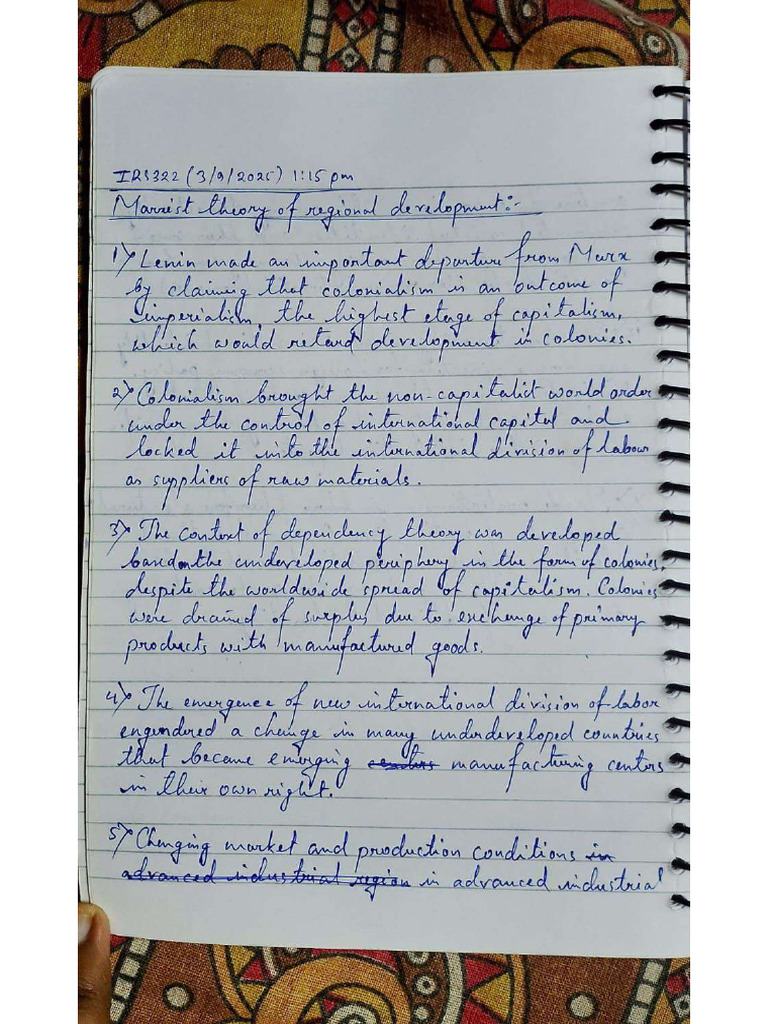 IRS322 (3/9/2025) 1:15 pm
Marxist theory of regional development:-
1) Lenin made an important departure from Marx
by claiming that colonialism is an outcome of
imperialism, the highest stage of capitalism,
which would retard development in colonies.
2) Colonialism brought the non-capitalist world order
under the control of international capital and
locked it into the international division of labour
as suppliers of raw materials.
3) The context of dependency theory was developed
based on the undeveloped periphery in the form of colonies,
despite the worldwide spread of capitalism. Colonies
were drained of surplus due to exchange of primary
products with manufactured goods.
4) The emergence of new international division of labor
engendered a change in many underdeveloped countries
that became emerging centers manufacturing centers
in their own right.
5) Changing market and production conditions in
advanced industrial region in advanced industrial